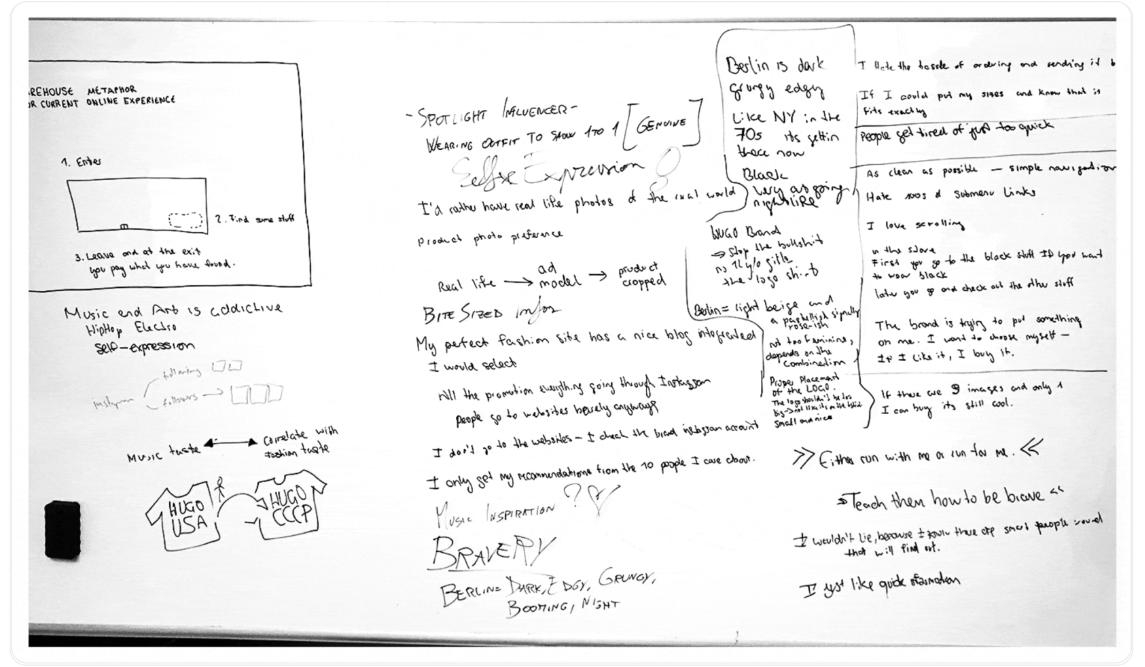 REHOUSE METAPHOR
OR CURRENT ONLINE EXPERIENCE
1. Enter
2. Find some stuff
3. Leave and at the exit
you pay what you have found.
Music and Art is addictive
HipHop Electro
self-expression
following
Instagram
followers
Music taste
Correlate with
fashion taste
HUGO
USA
HUGO
CCCP
- SPOTLIGHT INFLUENCER -
WEARING OUTFIT TO SHOW 1 TO 1 [GENUINE]
Expression
I'd rather have real life photos of the real world
Product photo preference
Real like → ad model → product cropped
BITE SIZED infos
My perfect fashion site has a nice blog integrated
I would select
All the promotion everything going through Instagram
people go to websites barely anyways
I don't go to the websites - I check the brand instagram account
I only get my recommendations from the 10 people I care about.
MUSIC INSPIRATION ?
BRAVERY
BERLIN = DARK, EDGY, GRUNGY,
BOOMING, NIGHT
Berlin is dark
grungy edgy
Like NY in the
70s its gettin
there now
Black
Very as going
nightlike
HUGO Brand
⇒ Stop the bullshit
the logo shirt
Berlin = light beige and
a
not too feminine,
depends on the
combination
Proper Placement
of the LOGO.
The logo shouldn't be too
big
small and nice
I Hate the hassle of ordering and sending it b
If I could put my sizes and know that it
fits exactly
People get tired of just too quick
As clean as possible - simple navigation
Hate 100s of Submenu Links
I love scrolling
in the store
First you go to the black stuff If you want
to wear black
later you go and check out the other stuff
The brand is trying to put something
on me. I want to choose myself -
If I like it, I buy it.
If there are 9 images and only 1
I can buy its still cool.
>> Either run with me or run for me. <<
Teach them how to be brave
I wouldn't lie, because I know there are smart people around
that will find out.
I just like quick information